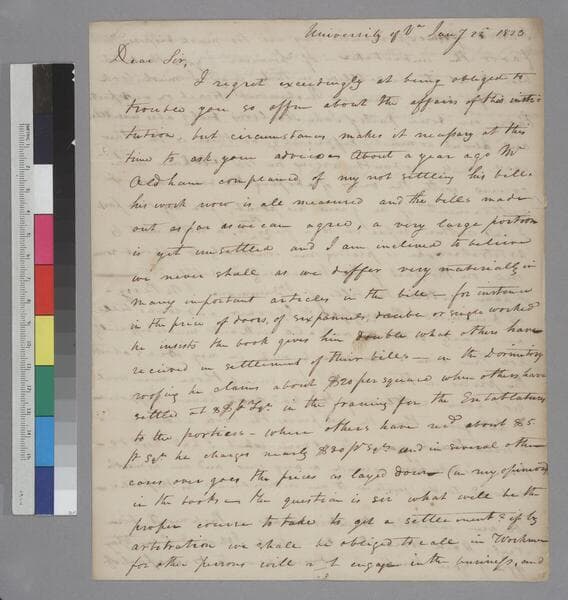 University of Va Jany 1823
Dear Sir,
I regret exceedingly at being obliged to
trouble you so offen about the affairs of this insti
tution, but circumstances makes it necessary at this
time to ask your advice About a year ago Mr
Oldham complained of my not settling his bills.
his work now is all measured and the bills made
out as far as we can agree, a very large portion
is yet unsettled and I am inclined to believe
we never shall as we differ very materially in
many important articles in the bill — for instance
in the price of doors, of six pannels, double or single worked
he insists the book gives him double what others have
received in settlement of their bills — in the Dormitory
roofing he claims about $20 per square when others have
settled at pr Sqr. in the framing for the Entablatures
to the porticos — where others have recd about $5.
pr Sqr he charges nearly $30 pr Sqr and in several other
cases over goes the prices as layed down (in my opinion)
in the books — the question is sir what will be the
proper course to take to get a settlement = if by
arbitration we shall be obliged to call in Workmen
for other persons will not engage in the business, and